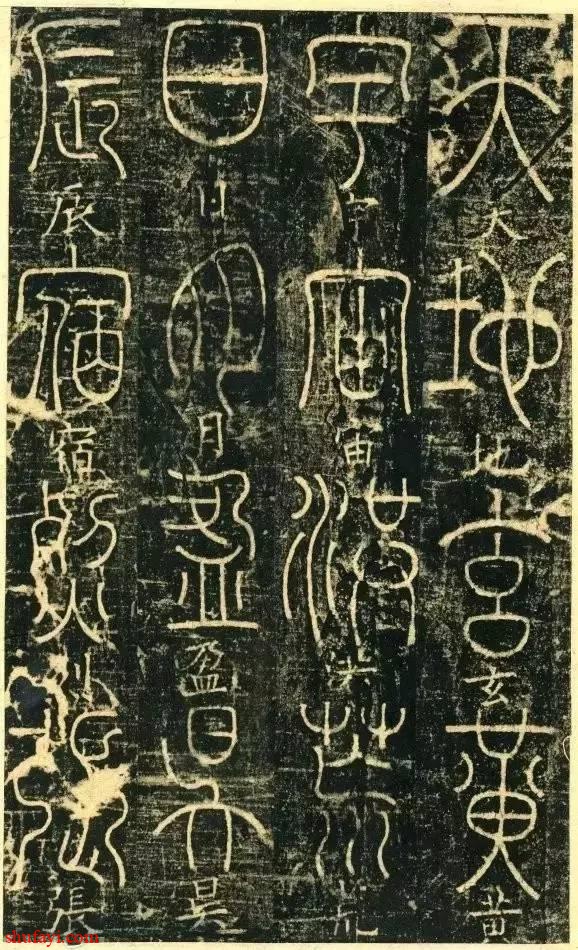 天天地地玄玄黃黃
宇宇宙宙洪洪荒荒
日日月月盈盈昃昃
辰辰宿宿列列張張
shufayi.com